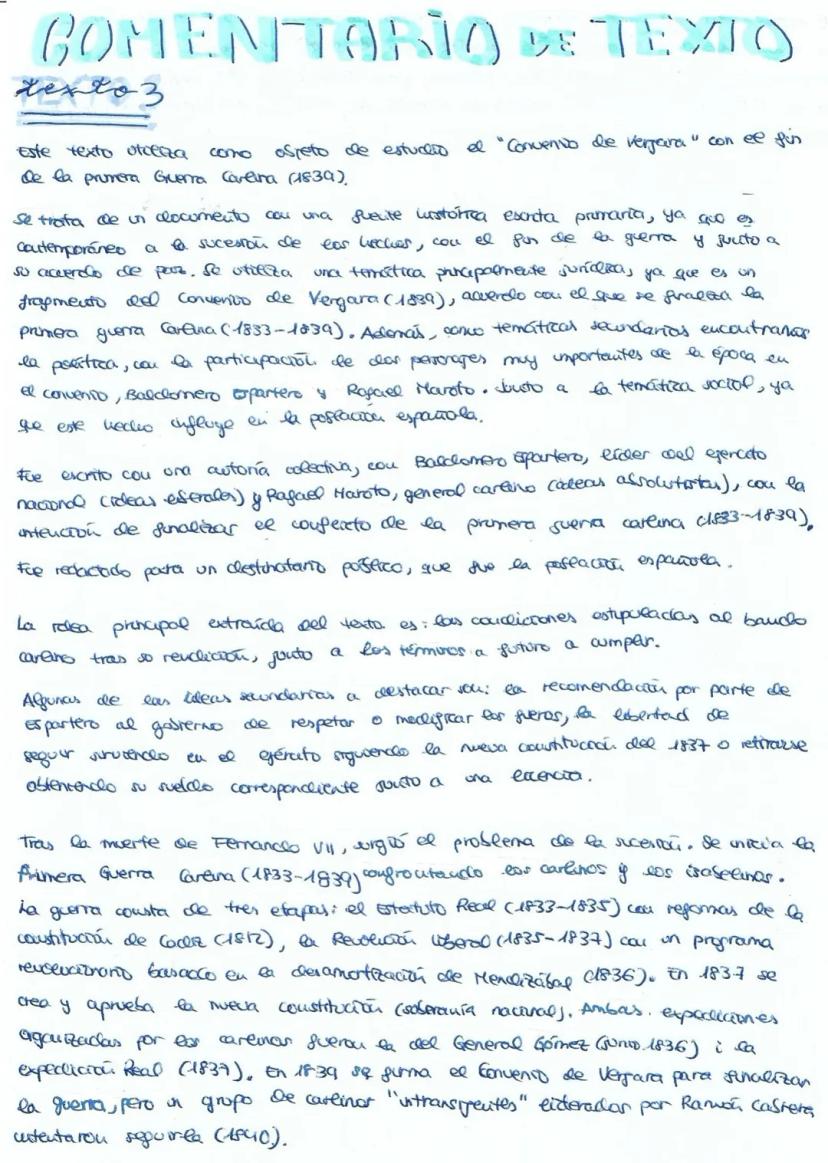 COMENTARIO DE TEXTO
texto 3
Este texto utiliza como objeto de estudio el "Convenio de Vergara" con el fin
de la primera Guerra Carlina (1839).
Se trata de un documento con una fuente histórica escrita primaria, ya que es
contemporáneo a la sucesión de los hechos, con el fin de la guerra y junto a
su acuerdo de paz. Se utiliza una temática principalmente jurídica, ya que es un
fragmento del Convenio de Vergara (1839), acuerdo con el que se finaliza la
primera guerra Carlina (1833-1839). Además, como temáticas secundarias encontramos
la política, con la participación de dos personajes muy importantes de la época en
el convenio, Baldomero Espartero y Rafael Maroto. Junto a la temática social, ya
que este hecho influye en la población española.
Fue escrito con una autoría colectiva, con Baldomero Espartero, líder del ejercito
nacional (ideas liberales) y Rafael Maroto, general carlino (ideas absolutistas), con la
intención de finalizar el conflicto de la primera guerra carlina (1833-1839).
Fue redactado para un destinatario público, que fue la población española.
La idea principal extraída del texto es: las condiciones estipuladas al bando
carlino tras su rendición, junto a los términos a futuro a cumplir.
Algunas de las ideas secundarias a destacar son: la recomendación por parte de
Espartero al gobierno de respetar o modificar los fueros, la libertad de
seguir sirviendo en el ejército siguiendo la nueva constitución del 1837 o retirarse
obteniendo su sueldo correspondiente junto a una licencia.
Tras la muerte de Fernando VII, surgió el problema de la sucesión. Se inicia la
Primera Guerra Carlina (1833-1839) confrontando los carlinos y los isabelinos.
La guerra consta de tres etapas: el Estatuto Real (1833-1835) con reformas de la
constitución de Cádiz (1812), la Revolución liberal (1835-1837) con un programa
revolucionario basado en la desamortización de Mendizábal (1836). En 1837 se
crea y aprueba la nueva constitución (soberanía nacional). Ambas expediciones
organizadas por los carlinos fueron la del General Gómez (junio 1836) i la
expedición Real (1837). En 1839 se firma el Convenio de Vergara para finalizar
la guerra, pero un grupo de carlinos "intransigentes" liderados por Ramón Cabrera
intentaron seguirla (1840).